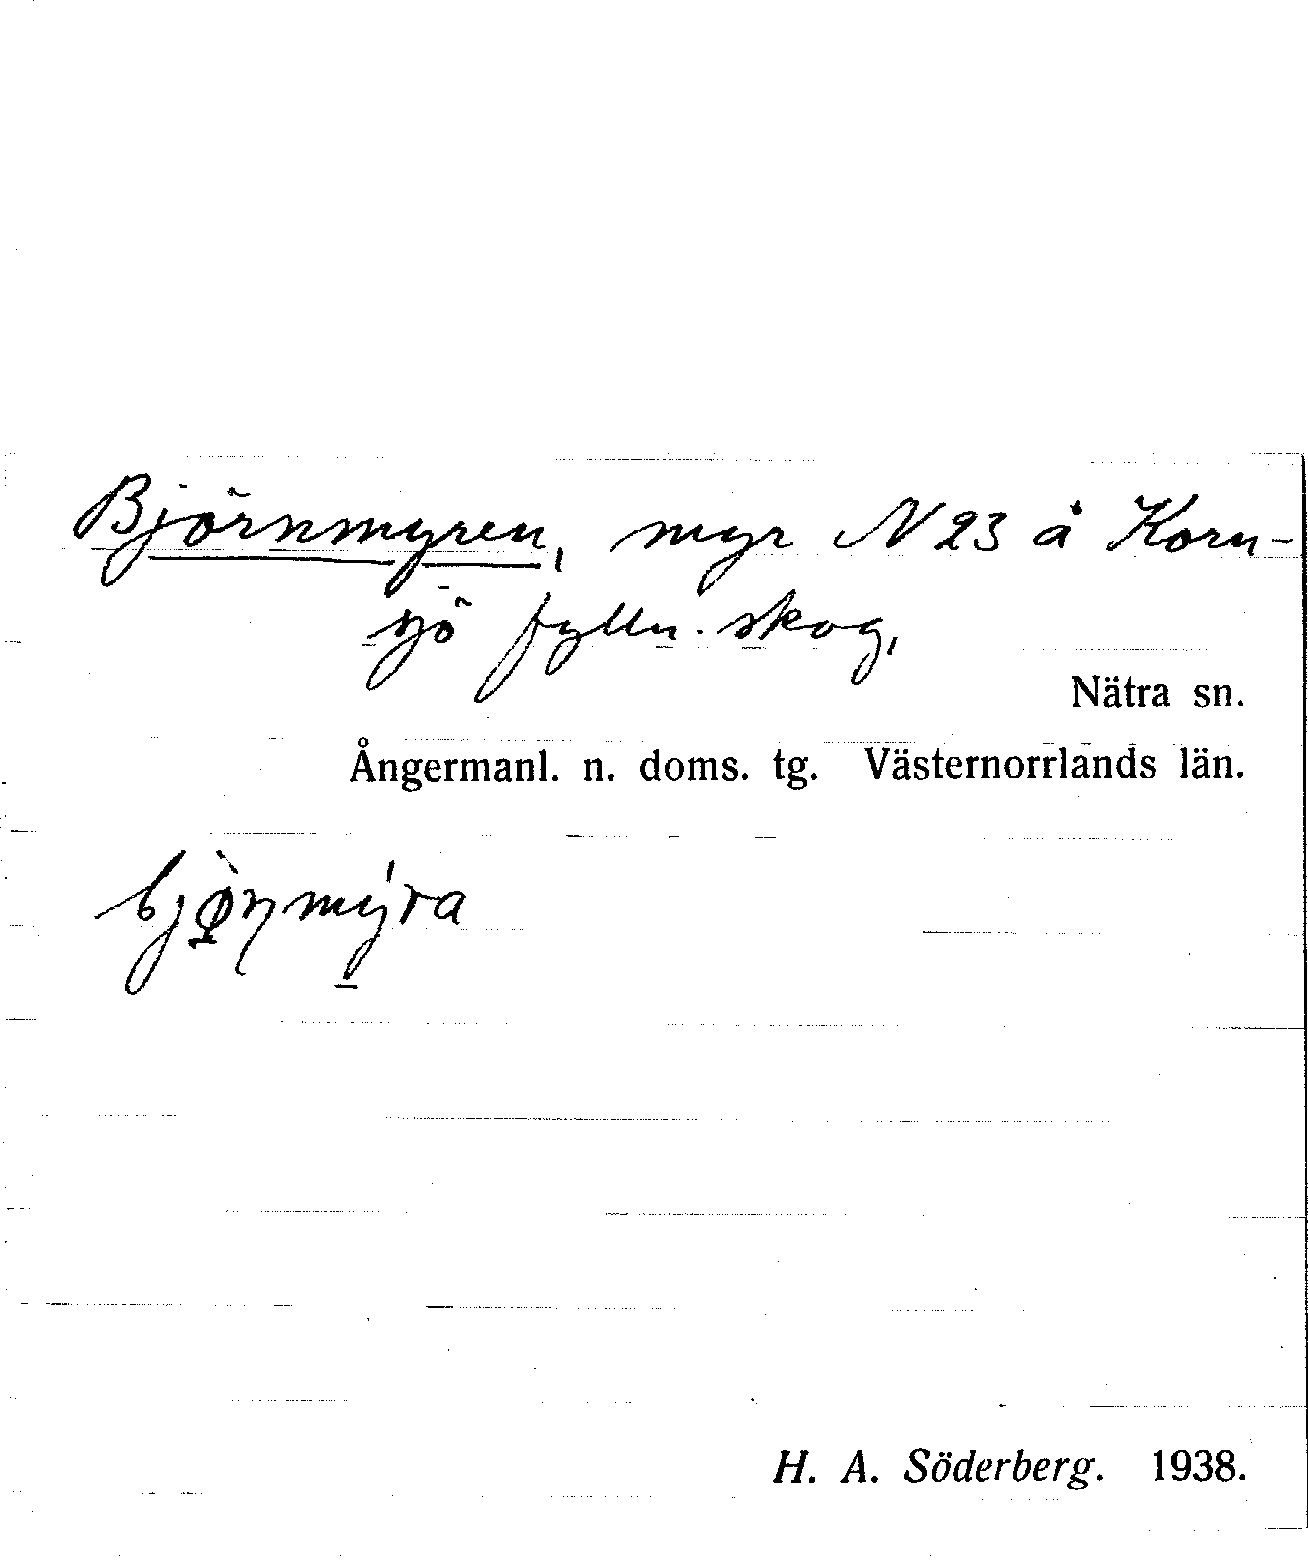 Björnmyren, myr N 23 å Korn-
sjö fylln. skog,
Nätra sn.
Ångermanl. n. doms. tg. Västernorrlands län.
H. A. Söderberg. 1938.